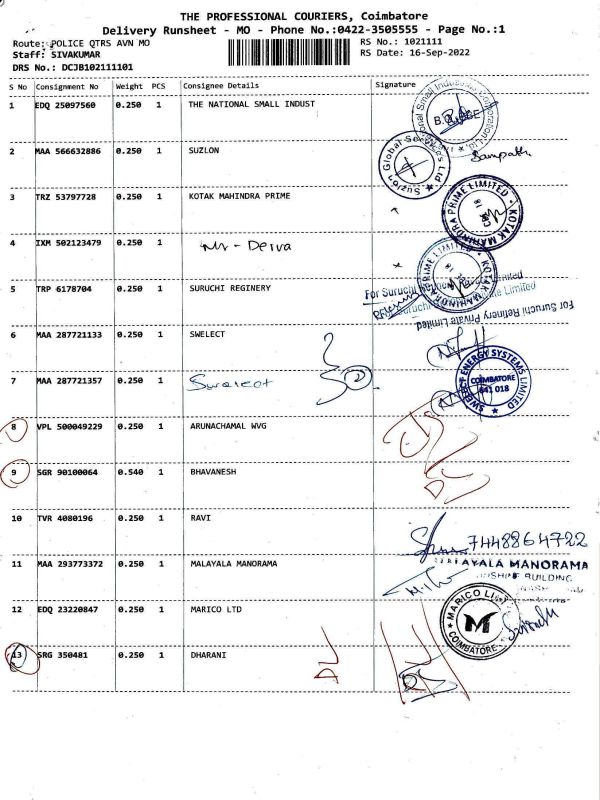 THE PROFESSIONAL COURIERS, Coimbatore
Delivery Runsheet - MO - Phone No.:0422-3505555 - Page No.:1
Route: POLICE QTRS AVN MO
RS No.: 1021111
Staff: SIVAKUMAR
RS Date: 16-Sep-2022
DRS No.: DCJB102111101
S No Consignment No Weight PCS Consignee Details Signature
1 EDQ 25097560 0.250 1 THE NATIONAL SMALL INDUST
2 MAA 566632886 0.250 1 SUZLON
Suzlon Global Services Ltd
Sampath
3 TRZ 53797728 0.250 1 KOTAK MAHINDRA PRIME
KOTAK MAHINDRA PRIME LIMITED
4 IXM 502123479 0.250 1 Mr - Deiva
KOTAK MAHINDRA PRIME LIMITED
5 TRP 6178704 0.250 1 SURUCHI REGINERY
For Suruchi Refinery Private Limited
For Suruchi Refinery Private Limited
6 MAA 287721133 0.250 1 SWELECT
7 MAA 287721357 0.250 1 Swelect 2
SWELECT ENERGY SYSTEMS LIMITED
COIMBATORE
641 018
8 VPL 500049229 0.250 1 ARUNACHAMAL WVG
9 SGR 90100064 0.540 1 BHAVANESH
DL
10 TVR 4080196 0.250 1 RAVI
7448864722
11 MAA 293773372 0.250 1 MALAYALA MANORAMA
MALAYALA MANORAMA
BUILDING
12 EDQ 23220847 0.250 1 MARICO LTD
MARICO LIMITED
M
COIMBATORE
13 SRG 350481 0.250 1 DHARANI
DL
DL